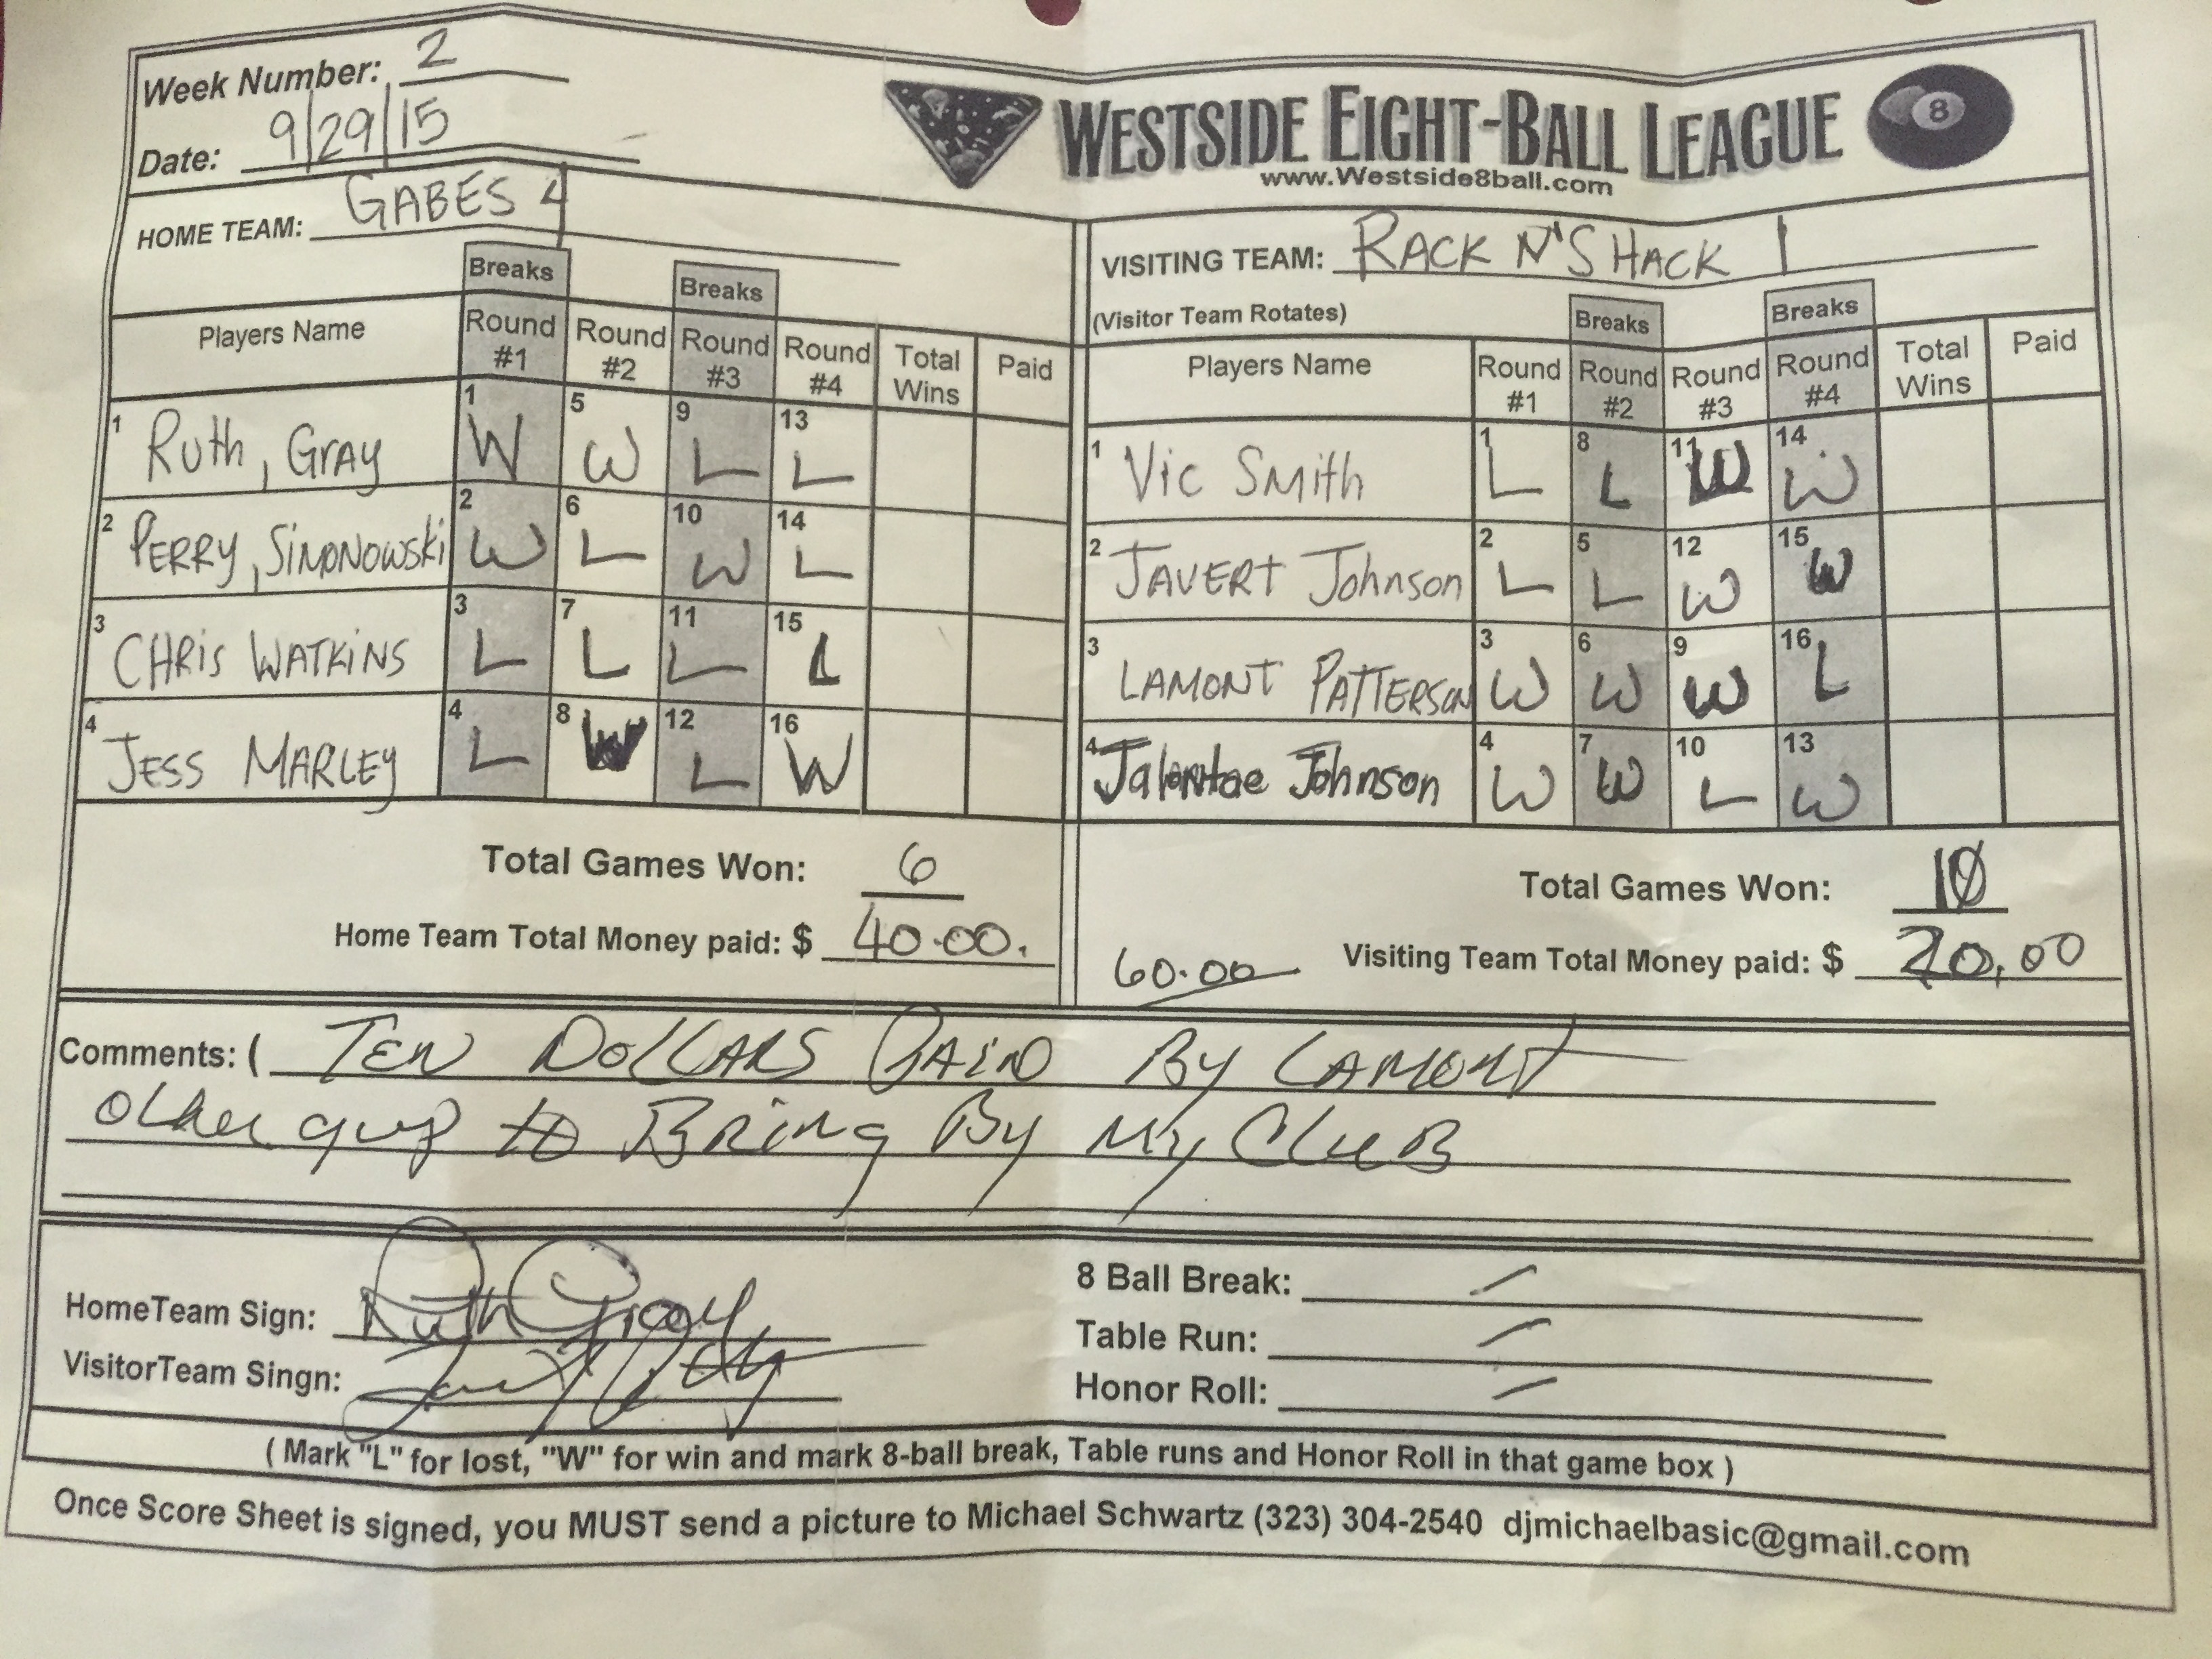 Week Number: 2
Date: 9/29/15
WESTSIDE EIGHT-BALL LEAGUE 8
www.Westside8ball.com
HOME TEAM: GABES 4
Breaks Breaks
Players Name Round #1 Round #2 Round #3 Round #4 Total Wins Paid
1 Ruth, Gray 1 W 5 W 9 L 13 L
2 PERRY, SIMONOWSKi 2 W 6 L 10 W 14 L
3 CHRiS WATKiNS 3 L 7 L 11 L 15 L
4 JESS MARLEY 4 L 8 W 12 L 16 W
Total Games Won: 6
Home Team Total Money paid: $ 40.00.
VISITING TEAM: RACK N'SHACK 1
(Visitor Team Rotates) Breaks Breaks
Players Name Round #1 Round #2 Round #3 Round #4 Total Wins Paid
1 Vic Smith 1 L 8 L 11 W 14 W
2 JAVERT Johnson 2 L 5 L 12 W 15 W
3 LAMONT PATTERSON 3 W 6 W 9 W 16 L
4 Johnson 4 W 7 W 10 L 13 W
Total Games Won: 10
60.00 Visiting Team Total Money paid: $ 20.00
Comments: ( TEN DOLLARS PAID By LAMONT
other guys to BRing By My CluB
HomeTeam Sign: Ruth Gray
VisitorTeam Singn:
8 Ball Break: –
Table Run: –
Honor Roll: –
( Mark "L" for lost, "W" for win and mark 8-ball break, Table runs and Honor Roll in that game box )
Once Score Sheet is signed, you MUST send a picture to Michael Schwartz (323) 304-2540 djmichaelbasic@gmail.com